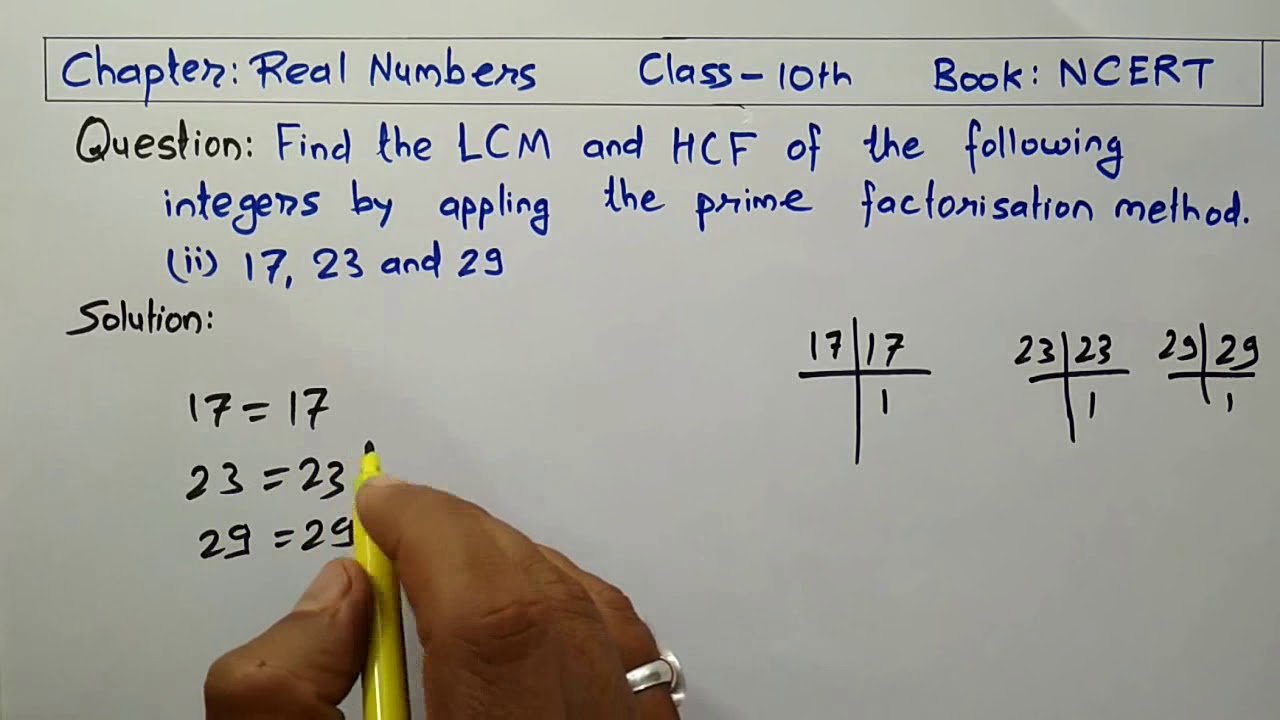 Chapter: Real Numbers Class - 10th Book: NCERT
Question: Find the LCM and HCF of the following
integers by appling the prime factorisation method.
(ii) 17, 23 and 29
Solution:
17 | 17
1
23 | 23
1
29 | 29
1
17 = 17
23 = 23
29 = 29